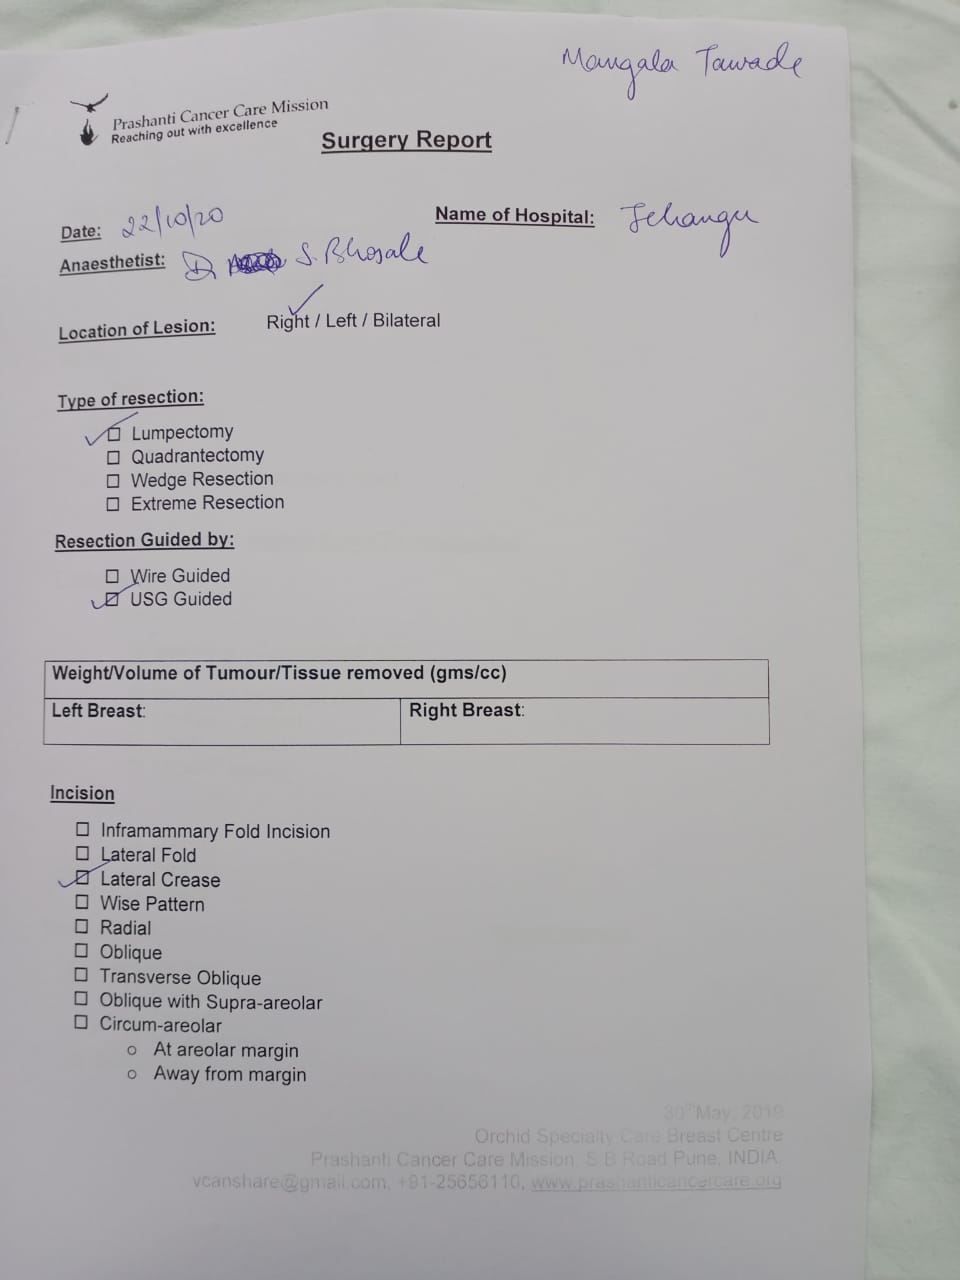 Mangala Tawade
Prashanti Cancer Care Mission
Reaching out with excellence
Surgery Report
Date: 22/10/20
Name of Hospital: Jehangir
Anaesthetist: Dr S. Bhosale
Location of Lesion: Right / Left / Bilateral
Type of resection:
Lumpectomy
Quadrantectomy
Wedge Resection
Extreme Resection
Resection Guided by:
Wire Guided
USG Guided
Weight/Volume of Tumour/Tissue removed (gms/cc)
Left Breast: Right Breast:
Incision
Inframammary Fold Incision
Lateral Fold
Lateral Crease
Wise Pattern
Radial
Oblique
Transverse Oblique
Oblique with Supra-areolar
Circum-areolar
At areolar margin
Away from margin
30th May, 2019
Orchid Specialty Care Breast Centre
Prashanti Cancer Care Mission, S.B Road Pune, INDIA.
vcanshare@gmail.com, +91-25656110, www.prashanticancercare.org